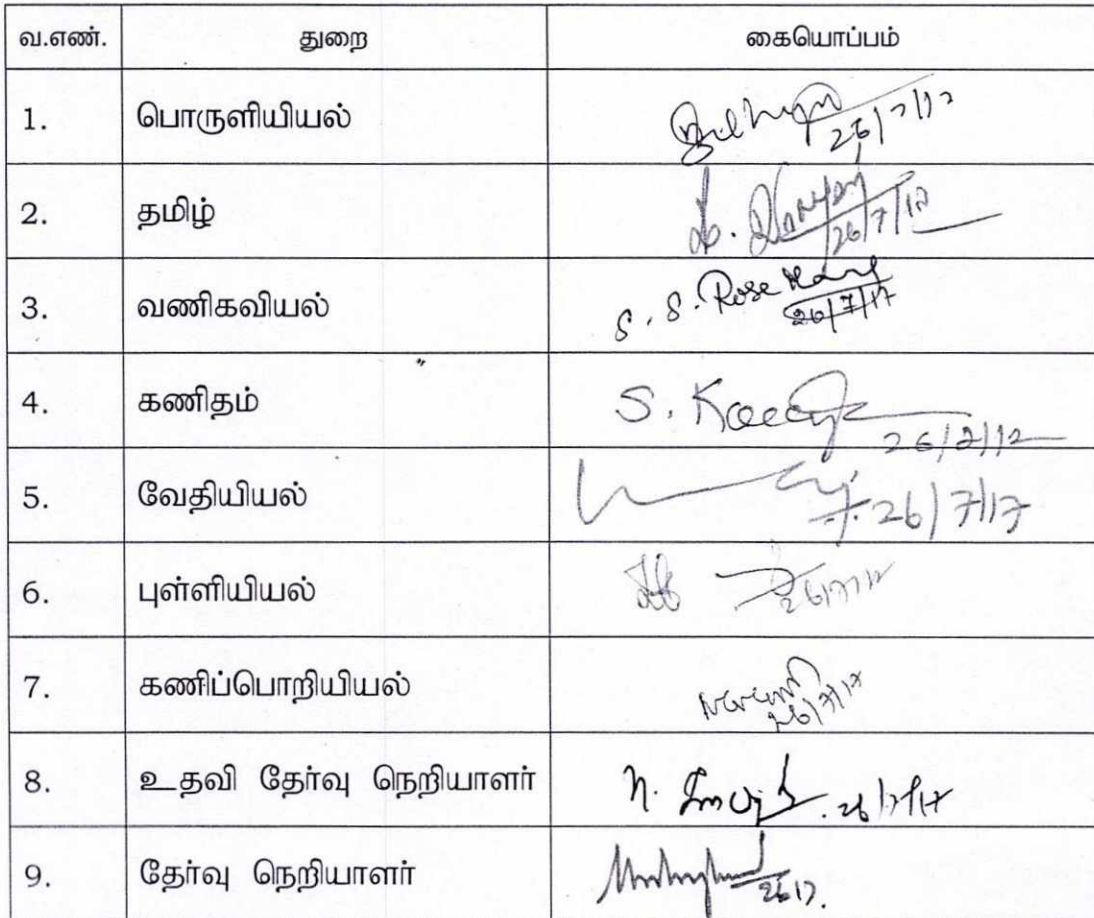 வ.எண். துறை கையொப்பம்
1. பொருளியியல் 26/7/17
2. தமிழ் 26/7/17
3. வணிகவியல் S. S. Rose Mary 26/7/17
4. கணிதம் S. 26/7/17
5. வேதியியல் 26/7/17
6. புள்ளியியல் 26/7/17
7. கணிப்பொறியியல் 26/7/17
8. உதவி தேர்வு நெறியாளர் N. 26/7/17
9. தேர்வு நெறியாளர் 26/7.